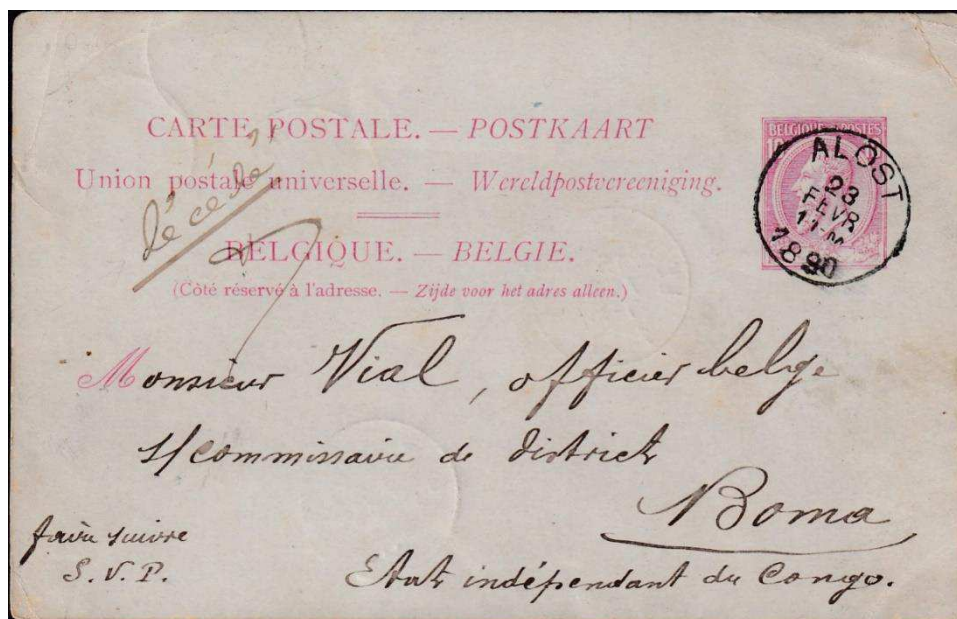 CARTE POSTALE. — POSTKAART
Union postale universelle. — Wereldpostvereeniging.
BELGIQUE. — BELGIE.
(Côté réservé à l'adresse. — Zijde voor het adres alleen.)
décédé
BELGIQUE POSTES
ALOST
23
FEVR
11-M
1890
Monsieur Vial, officier belge
s/commissaire de district
Boma
faire suivre
S.V.P.
Etat indépendant du Congo.